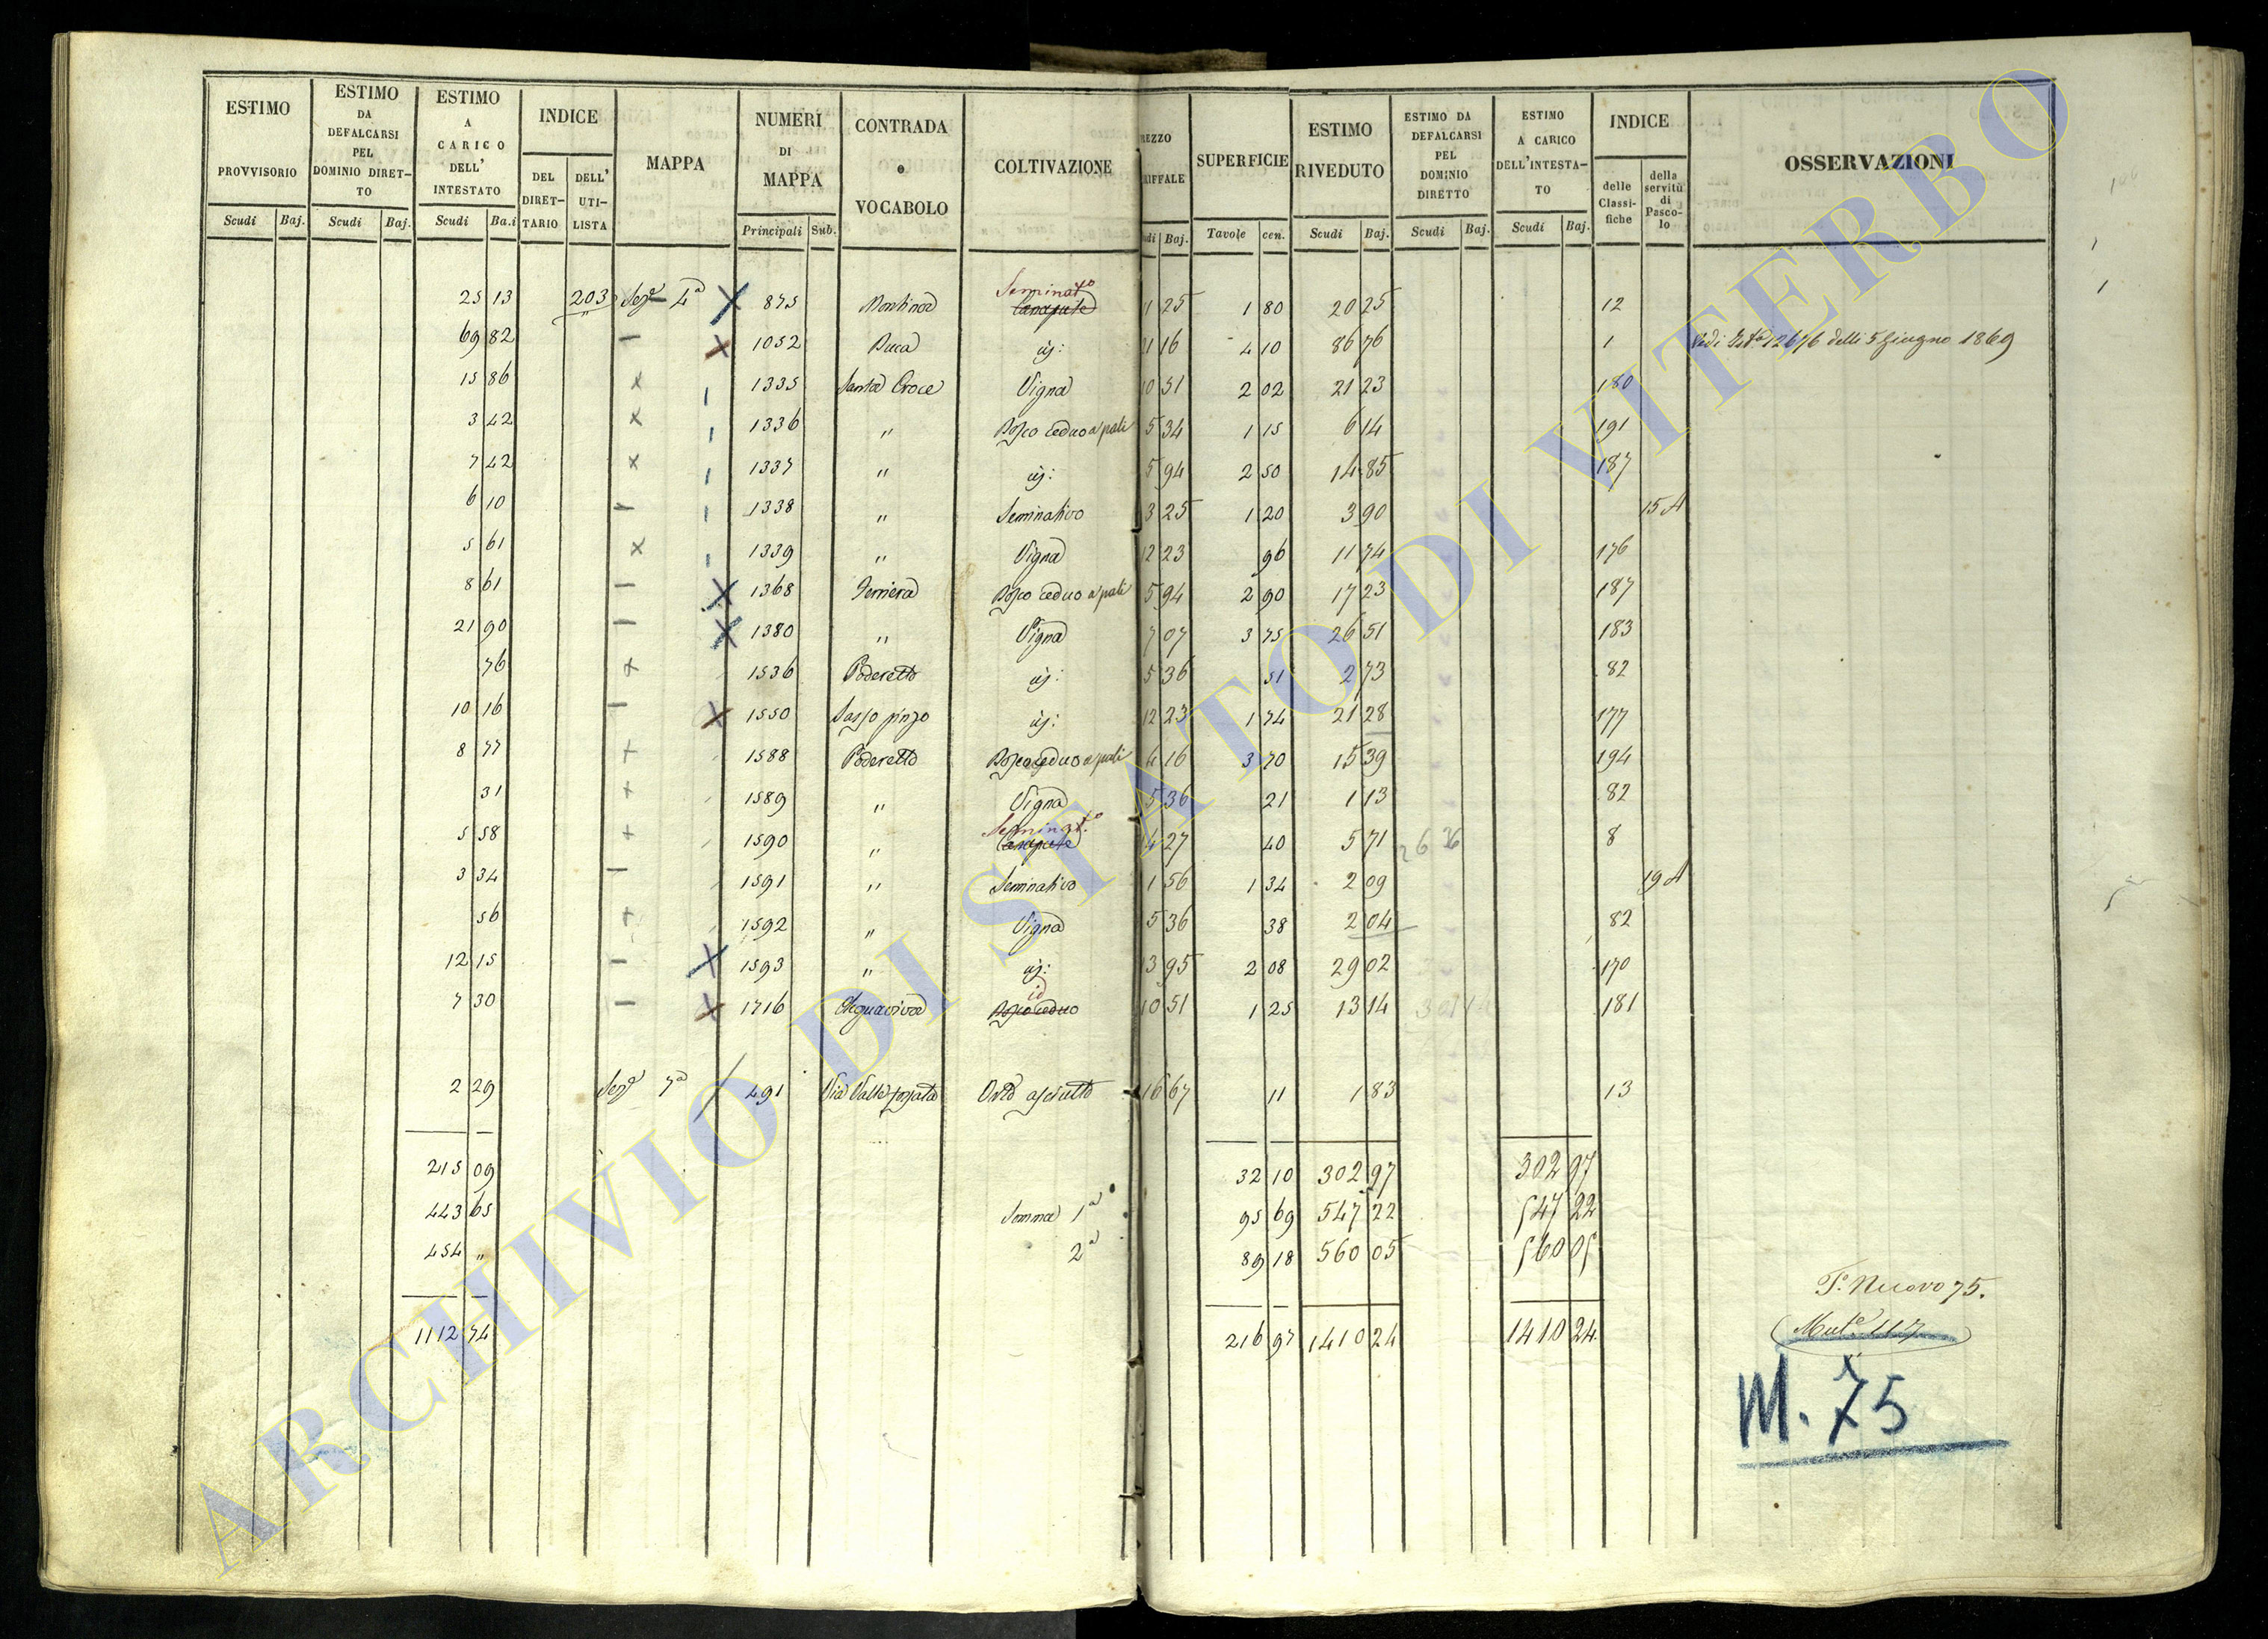 ESTIMO PROVVISORIO Scudi Baj.
ESTIMO DA DEFALCARSI PEL DOMINIO DIRET-TO Scudi Baj.
ESTIMO A CARICO DELL' INTESTATO Scudi Ba.i
INDICE DEL DIRET-TARIO DELL' UTI-LISTA
MAPPA
NUMERI DI MAPPA Principali Sub.
CONTRADA o VOCABOLO
COLTIVAZIONE
REZZO RIFFALE di Baj.
SUPERFICIE Tavole cen.
ESTIMO RIVEDUTO Scudi Baj.
ESTIMO DA DEFALCARSI PEL DOMINIO DIRETTO Scudi Baj.
ESTIMO A CARICO DELL'INTESTA-TO Scudi Baj.
INDICE delle Classi-fiche della servitù di Pasco-lo
OSSERVAZIONI
25 13 203 Sez.e 4a 875 Seminat.o 11 25 1 80 20 25 12
69 82 1052 Buca id: 21 16 4 10 86 76 1 Vedi 12676 delli 5 Giugno 1869
15 86 1335 Santa Croce Vigna 10 51 2 02 21 23 180
3 42 1336 " Bosco ceduo a pali 5 34 1 15 6 14 191
7 42 1337 " id: 5 94 2 50 14 85 187
6 10 1338 " Seminativo 3 25 1 20 3 90 15 A
5 61 1339 " Vigna 12 23 96 11 74 176
8 61 1368 Ferriera Bosco ceduo a pali 5 94 2 90 17 23 187
21 90 1380 " Vigna 7 07 3 75 26 51 183
76 1536 Poderetto id: 5 36 51 2 73 82
10 16 1550 Sasso pinzo id: 12 23 1 74 21 28 177
8 77 1588 Poderetto Bosco ceduo a pali 4 16 3 70 15 39 194
31 1589 " Vigna 5 36 21 1 13 82
5 58 1590 " Seminat.o 14 27 40 5 71 8
3 34 1591 " Seminativo 1 56 1 34 2 09 19 A
56 1592 " Vigna 5 36 38 2 04 82
12 15 1593 " id: 13 95 2 08 29 02 170
7 30 1716 Acquaviva id Bosco ceduo 10 51 1 25 13 14 181
2 29 Sez.e 7a 491 Via Valle Orto asciutto 16 67 11 1 83 13
215 09 32 10 302 97 302 97
443 65 Somma 1a 95 69 547 22 547 22
454 " 2a 89 18 560 05 560 05
1112 74 216 97 1410 24 1410 24
T.o Nuovo 75.
Mut.e 117
M. 75
ARCHIVIO DI STATO DI VITERBO